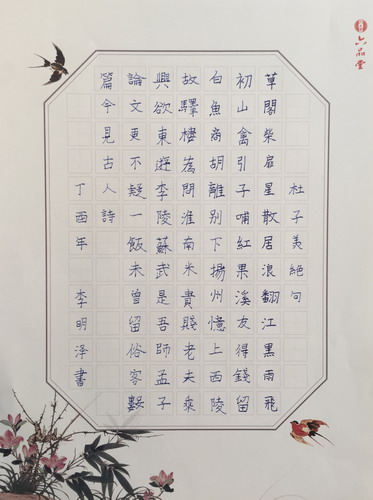 六品堂
杜子美絕句
草閣柴扉星散居浪翻江黑雨飛
初山禽引子哺紅果溪友得錢留
白魚商胡離別下揚州憶上西陵
故驛樓為問淮南米貴賤老夫乘
興欲東遊李陵蘇武是吾師孟子
論文更不疑一飯未曾留俗客數
篇今見古人詩
丁酉年 李明泽書